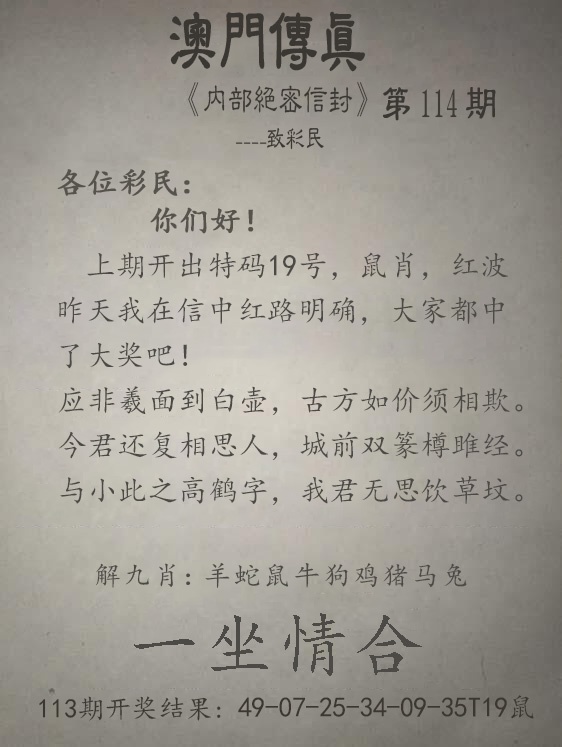 澳門傳眞
《内部絕密信封》第114期
----致彩民
各位彩民：
你们好！
上期开出特码19号，鼠肖，红波
昨天我在信中红路明确，大家都中
了大奖吧！
应非羲面到白壶，古方如价须相欺。
今君还复相思人，城前双篆樽雎经。
与小此之高鹤字，我君无思饮草坟。
解九肖：羊蛇鼠牛狗鸡猪马兔
一坐情合
113期开奖结果：49-07-25-34-09-35T19鼠